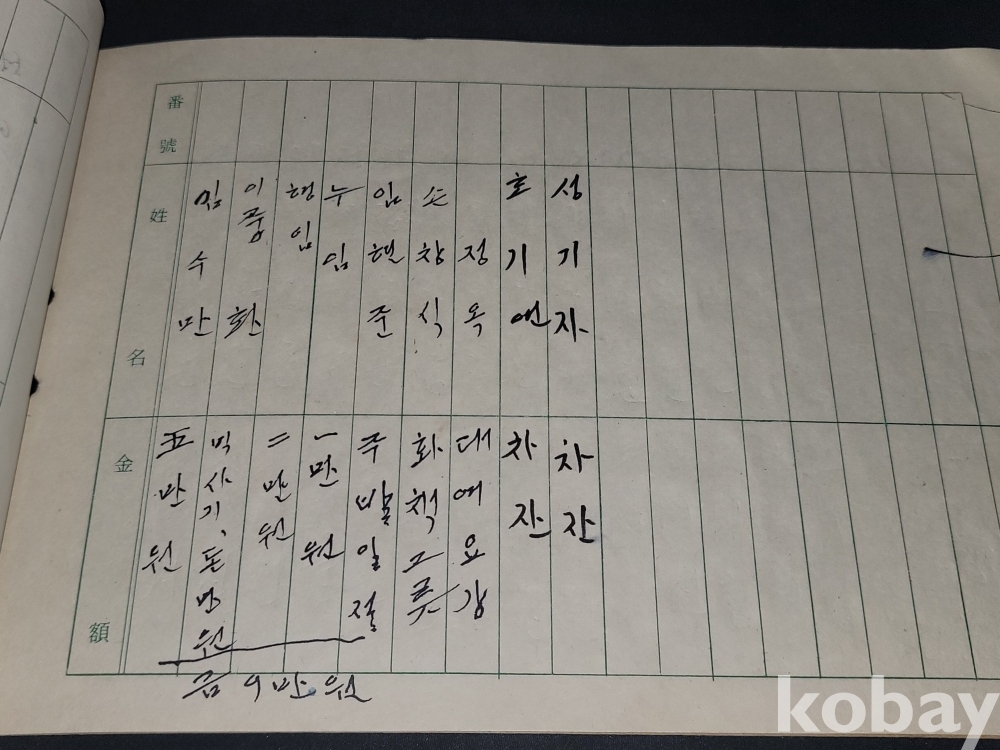 番號
姓名
金額
임수만
五만원
이풍환
믹사기、돈만원
형임
二만원
누임
一만원
임현준
주발일절
손창식
화첵그릇
정옥
대여요강
호기연
차잔
성기자
차잔
금 9만원
kobay